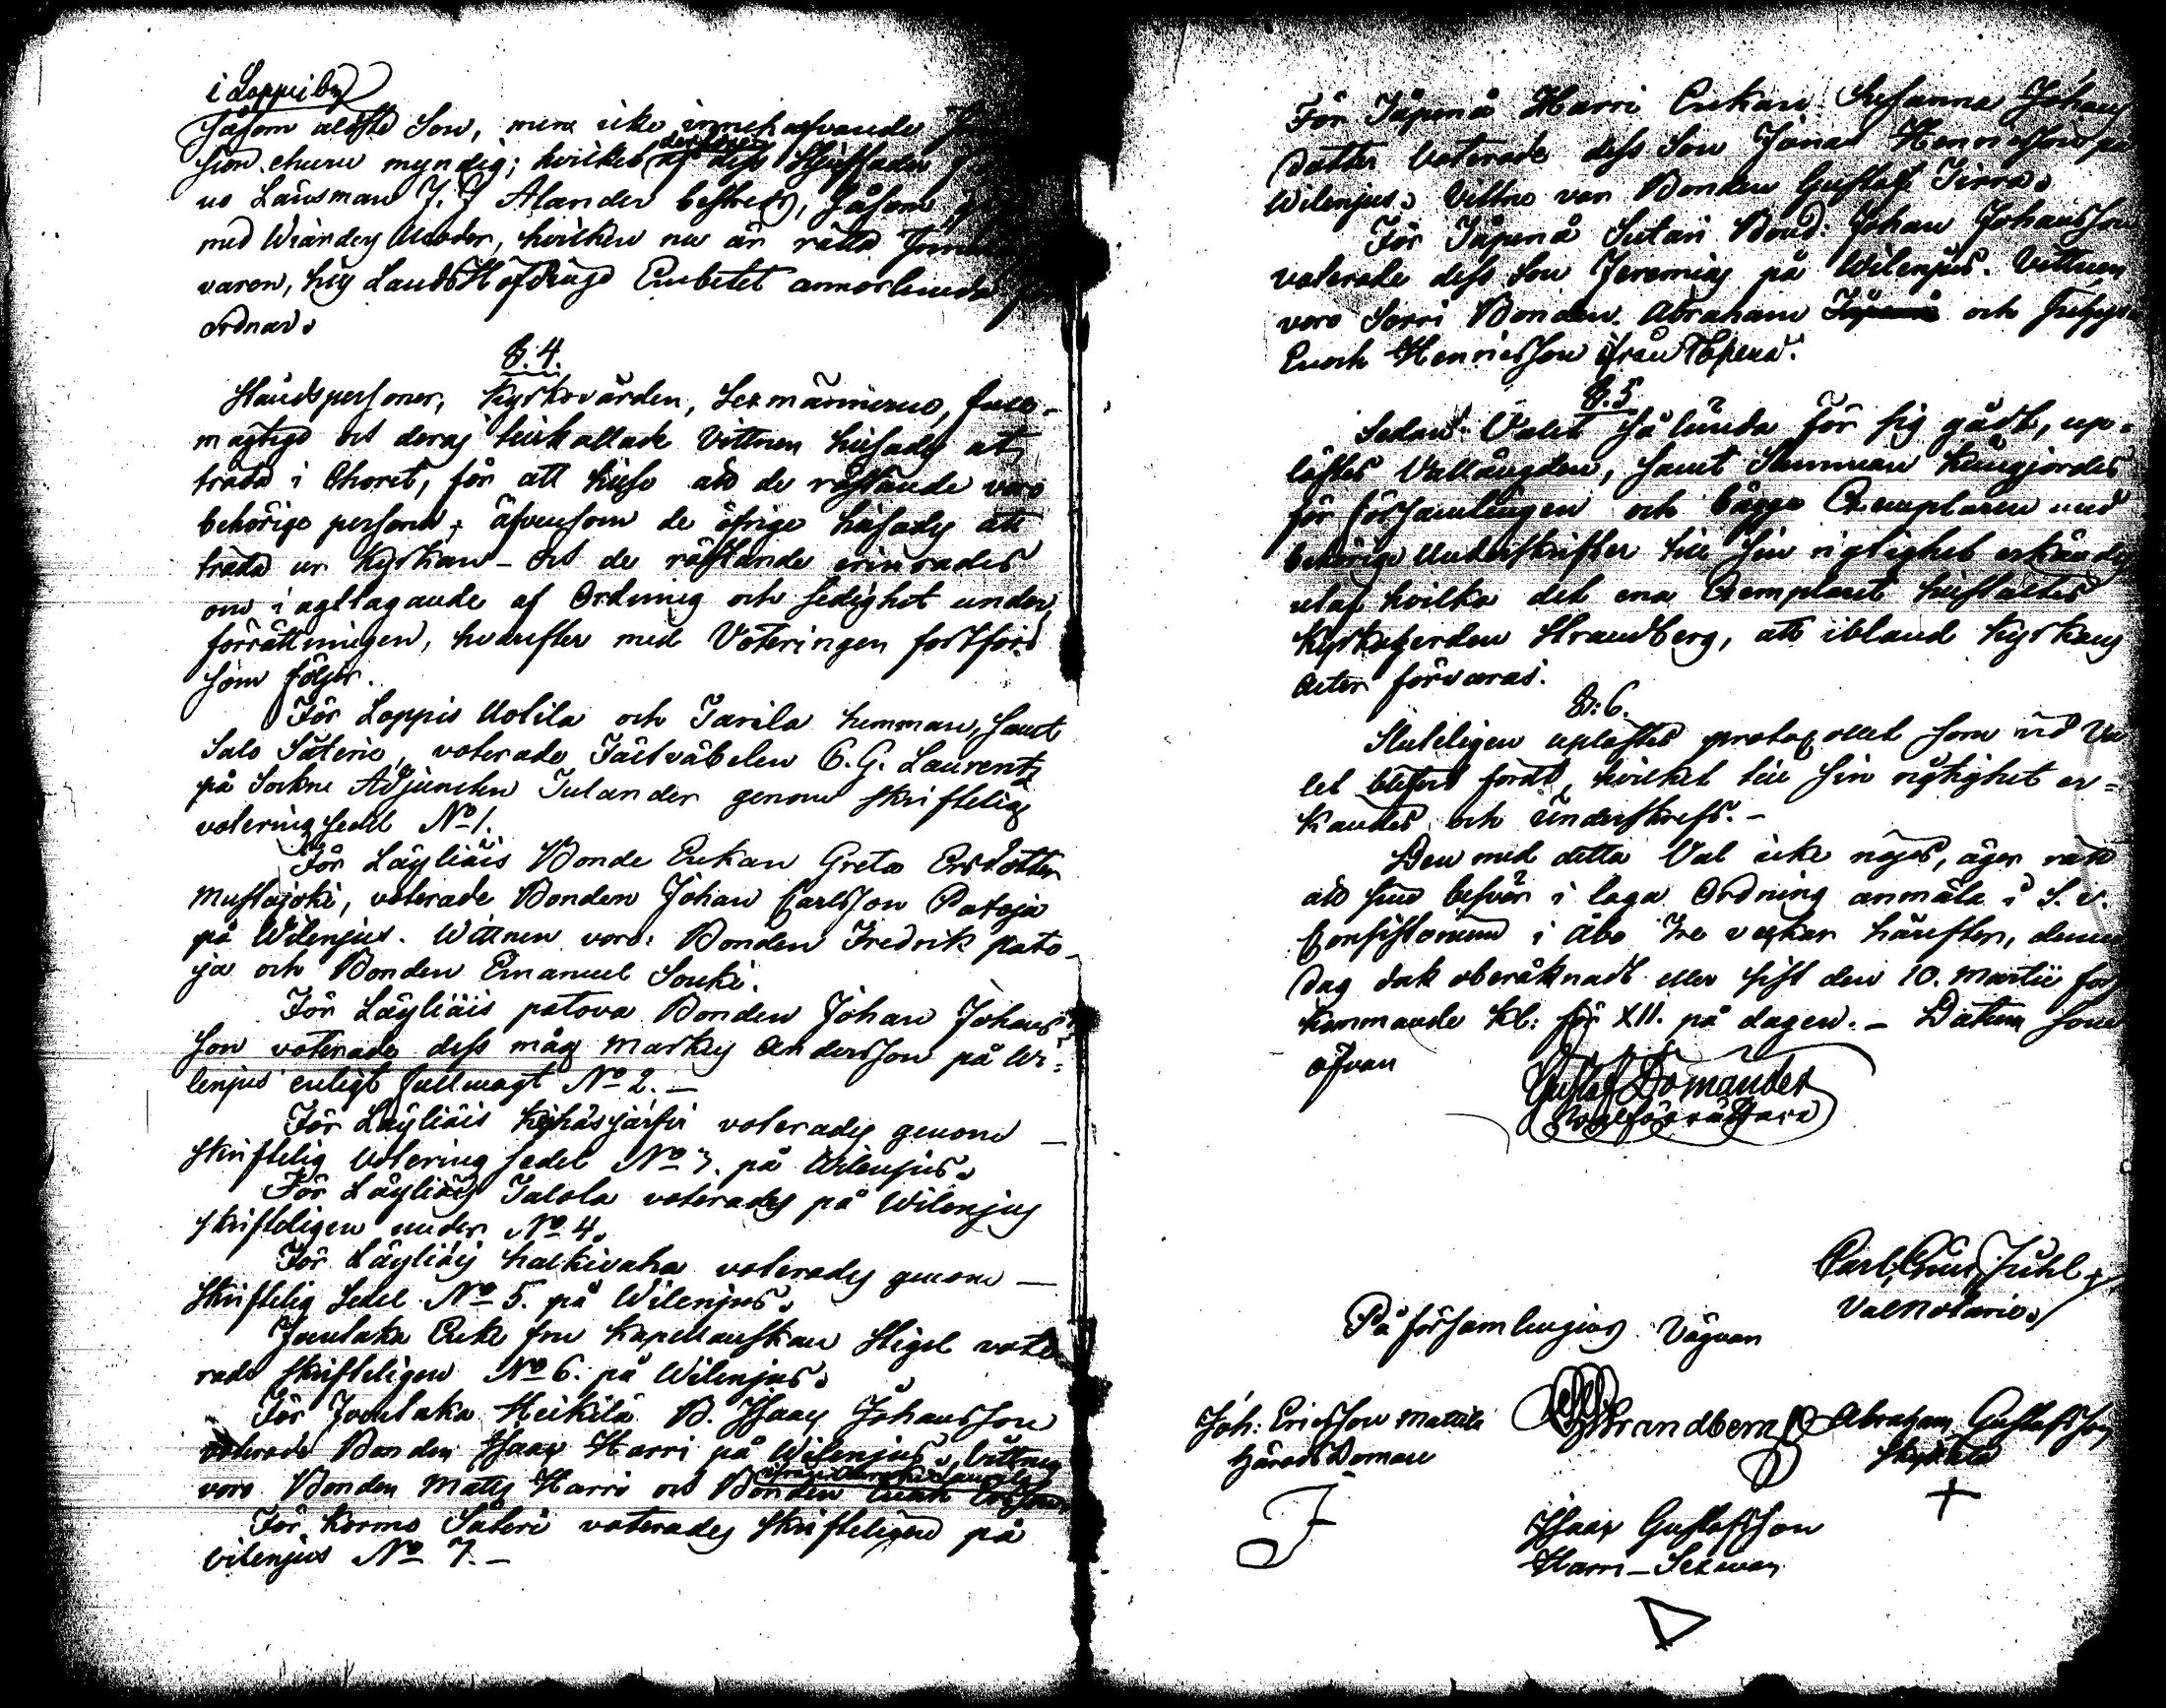 i Loppiby
såsom äldste Son, men icke innehafvande
sion, ehuru myndig; hvilket dess Stjuffader
no Länsman J. J. Alander bestred, såsom
med Wiändes Moder, hvilken nu är rätta
varen, tils LandsHöfdinge Embetet annorlunda
ordnar.
§. 4.
Ståndspersoner, Kyrkovärden, Sexmännerne, full-
mägtige och deras tilkallade Vittnen tilsades at
träda i Choret, för att tilse at de röstande voro
behörige personer, äfvensom de öfrige tilsades att
träda ur Kyrkan - Och de röstande erinrades
om i agttagande af Ordning och sedighet under
förrättningen, hvarefter med Voteringen fortfors
som följer.
För Loppis Uotila och Javila hemman, samt
Salo Säterie, voterade Fältväbelen C. G. Laurentz
på Sockne Adjuncten Tulander genom skriftelig
votering sedel No 1.
För Läyliäis Bonde Enkan Greta Ersdotter
Mustajoki, voterade Bonden Johan Carlsson Patoja
på Wilenjus. Wittnen voro: Bonden Fredrik pato-
ja och Bonden Emanuel Souki.
För Läyliäis patova Bonden Johan Johans
son voterade dess måg Markus Andersson på Wi=
lenjus enligt fullmagt No 2. -
För Läyliäis Kehäsjärfvi voterades genom -
skriftelig Votering sedel No 3. på Wilenjus.
För Läyliäis Talola voterades på Wilenjus
skrifteligen under No 4.
För Läyliäis halkivaha voterades genom -
skriftelig Sedel No 5. på Wilenjus.
Joentaka Enke fru Kapellanskan Stigel vote
rade skrifteligen No 6. på Wilenjus.
För Joentaka Heikilä B. Isaac Johansson
voterade Bonden Isaac Harri på Wilenjus. Vittnen
voro Bonden Mats Harri och Bonden
För Kormo Säteri voterades skrifteligen på
Vilenjus No 7. -
För Töpenå Harri Enkan Susanna Johans
dotter voterade dess Son Jonas Henricsson på
Wilenjus. Vittne var Bonden Gustaf Jirra.
För Töpenå Sutari Bond: Johan Johansson
voterade dess Son Jeremias på Wilenjus. Vittnen
voro Sorri Bonden Abraham och
Enoch Henricsson ifrån Töpenå.
§. 5.
Sedan Valet sålunda för sig gådt, up-
lästes Vallängden, samt Summan kungjordes
för församlingen och bägge Exemplaren med
behörige underskrifter till sin rigtighet erkändes
utaf hvilka det ena Exemplaret tilstältes
Kyrkoherden Strandberg, att ibland Kyrkans
Acter förvaras.
§: 6.
Sluteligen uplästes protocollet som vid Va-
let blifvit fördt, hvilket till sin rigtighet er=
kändes och underskrefs. -
Den med detta Val icke nöjes, äger rätt
att sine besvär i laga Ordning anmäla i S. v.
Consistorium i Åbo Tre veckor härefter, denne
dag dock oberäknadt eller sist den 10. Martii för
kommande kl: för XII. på dagen. - Datum som
ofvan
Gustaf Domander
Valförrättare
Carl Gust. Juhl
ValNotarie.
På församlingens Vägnar
Joh: Ericsson Mattila Strandberg Abraham Gustafsson
HäradsDomare Skyttälä
Isaac Gustafsson
Harri - Sexman